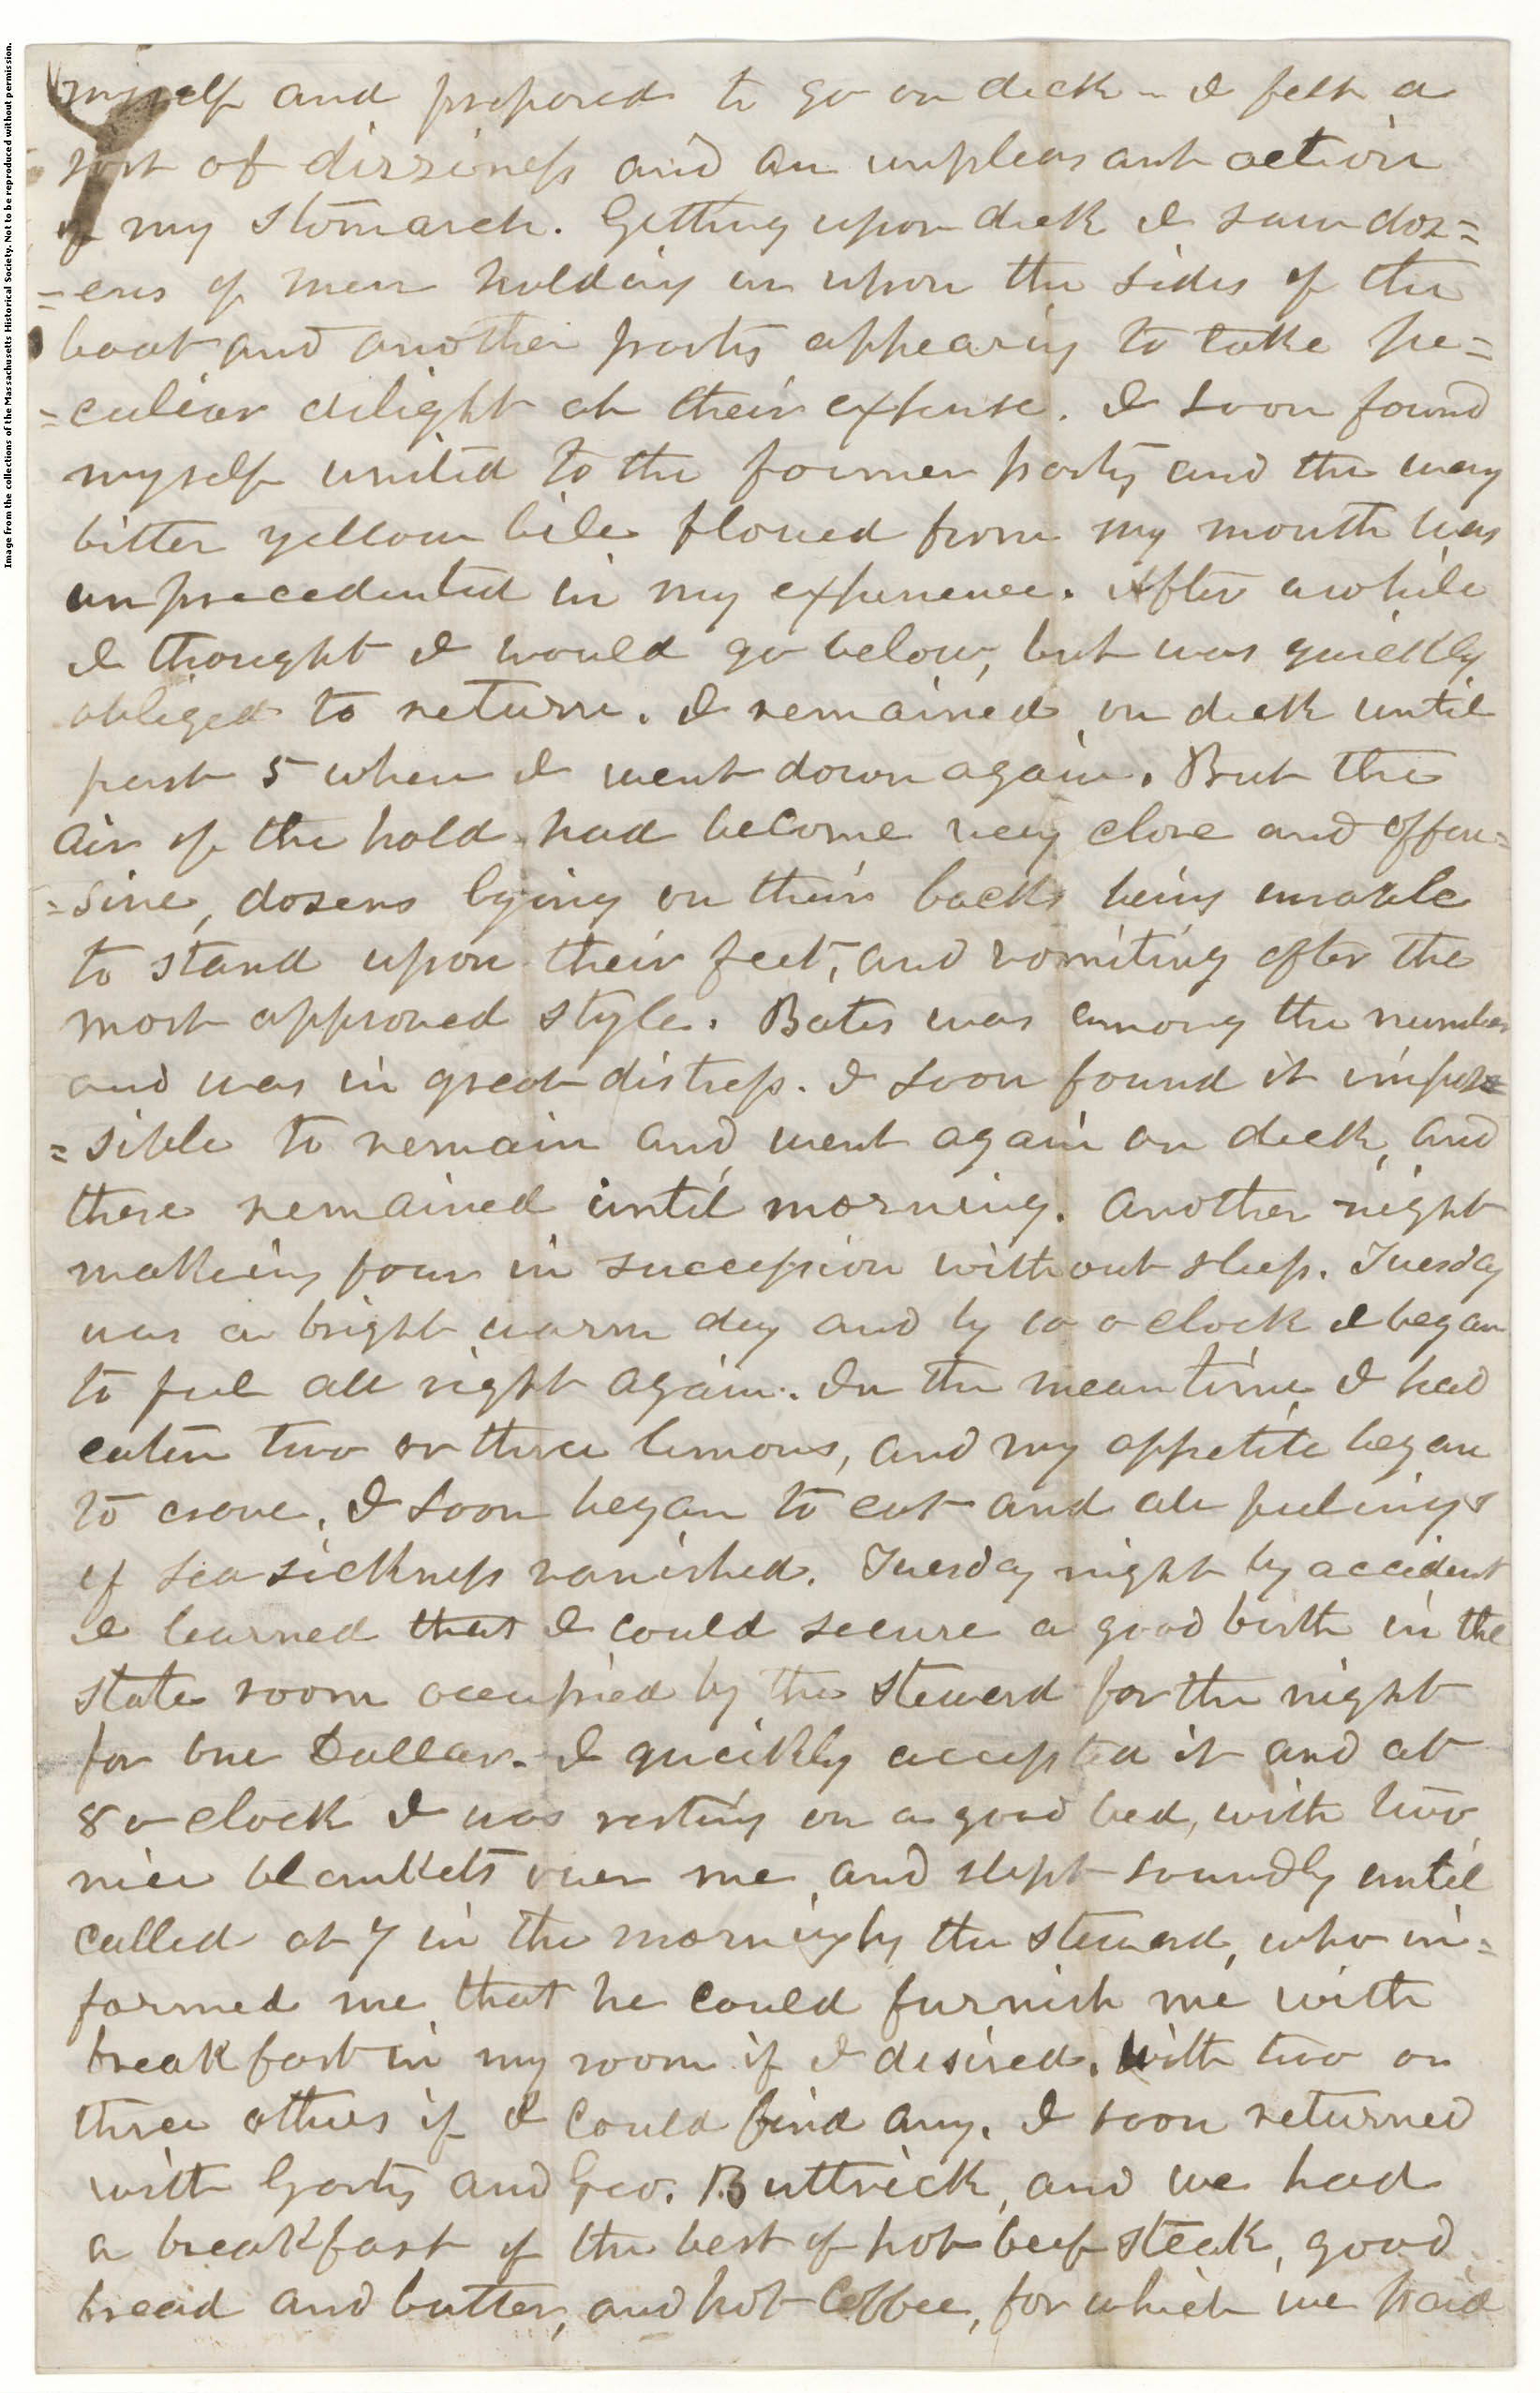 Image from the collections of the Massachusetts Historical Society. Not to be reproduced without permission.
myself and prepared to go on deck – I felt a
sort of dizziness and an unpleasant action
of my stomarch. Getting upon deck I saw doz=
=ens of men holding on upon the sides of the
boat and another party appearing to take pe=
=culiar delight at their expense. I soon found
myself united to the former party and the way
bitter yellow bile flowed from my mouth was
unprecedented in my experience. After awhile
I thought I would go below, but was quickly
obliged to return. I remained on deck until
past 5 when I went down again. But the
air of the hold had become very close and offen=
=sive, dozens lying on their backs being unable
to stand upon their feet, and vomiting after the
most approved style. Bates was among the number
and was in great distress. I soon found it impos=
=sible to remain and went again on deck, and
there remained until morning. Another night
making four in succession without sleep. Tuesday
was a bright warm day and by 10 o clock I began
to feel all right again. In the mean time I had
eaten two or three lemons, and my appetite began
to crave. I soon began to eat and all feelings
of sea sickness vanished. Tuesday night by accident
I learned that I could secure a good birth in the
state room occupied by the steward for the night
for one Dollar. I quickly accepted it and at
8 o clock I was resting on a good bed, with two
nice blankets over me, and slept soundly until
called at 7 in the morning by the steward, who in=
formed me that he could furnish me with
breakfast in my room if I desired. With two or
three others if I could find any. I soon returned
with Gorty and Geo. Buttrick, and we had
a breakfast of the best of hot beef steak, good
bread and butter, and hot Coffee, for which we paid